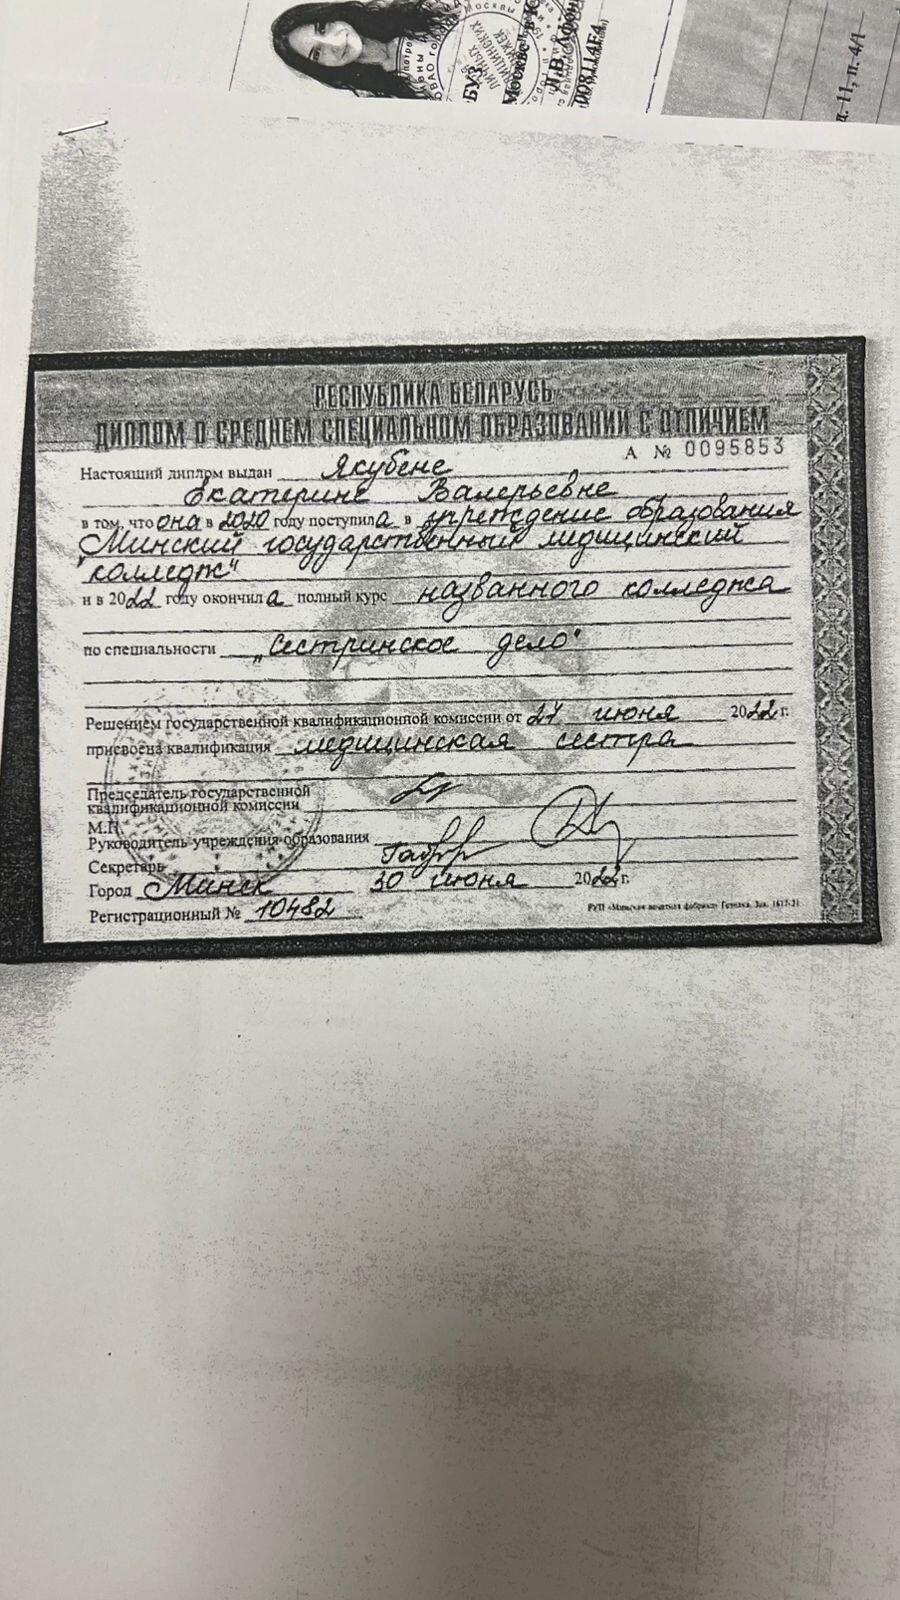 Москвы
д. 11, п. 4/1
РЕСПУБЛИКА БЕЛАРУСЬ
ДИПЛОМ О СРЕДНЕМ СПЕЦИАЛЬНОМ ОБРАЗОВАНИИ С ОТЛИЧИЕМ
А № 0095853
Настоящий диплом выдан Якубене
Екатерине Валерьевне
в том, что она в 2020 году поступила в учреждение образования
"Минский государственный медицинский
колледж"
и в 2022 году окончила полный курс названного колледжа
по специальности „Сестринское дело"
Решением государственной квалификационной комиссии от 27 июня 2022 г.
присвоена квалификация медицинская сестра
Председатель государственной
квалификационной комиссии
М.П.
Руководитель учреждения образования
Секретарь
Город Минск 30 июня 2022 г.
Регистрационный № 10482
РУП «Минская печатная фабрика» Гознака. Зак. 1617-21